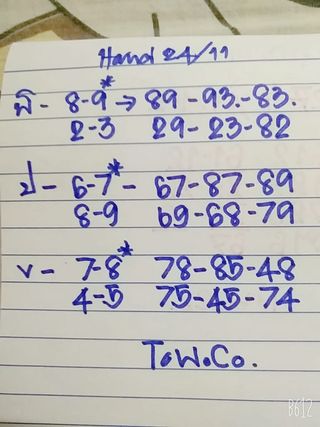 Hanoi 24/11
พิ - 8-9* → 89 - 93.- 83.
2-3 29 - 23-82
ป - 6-7* - 67-87-89
8-9 69-68-79
v - 7-8* 78-85-48
4-5 75-45-74
T.W.Co.
B612